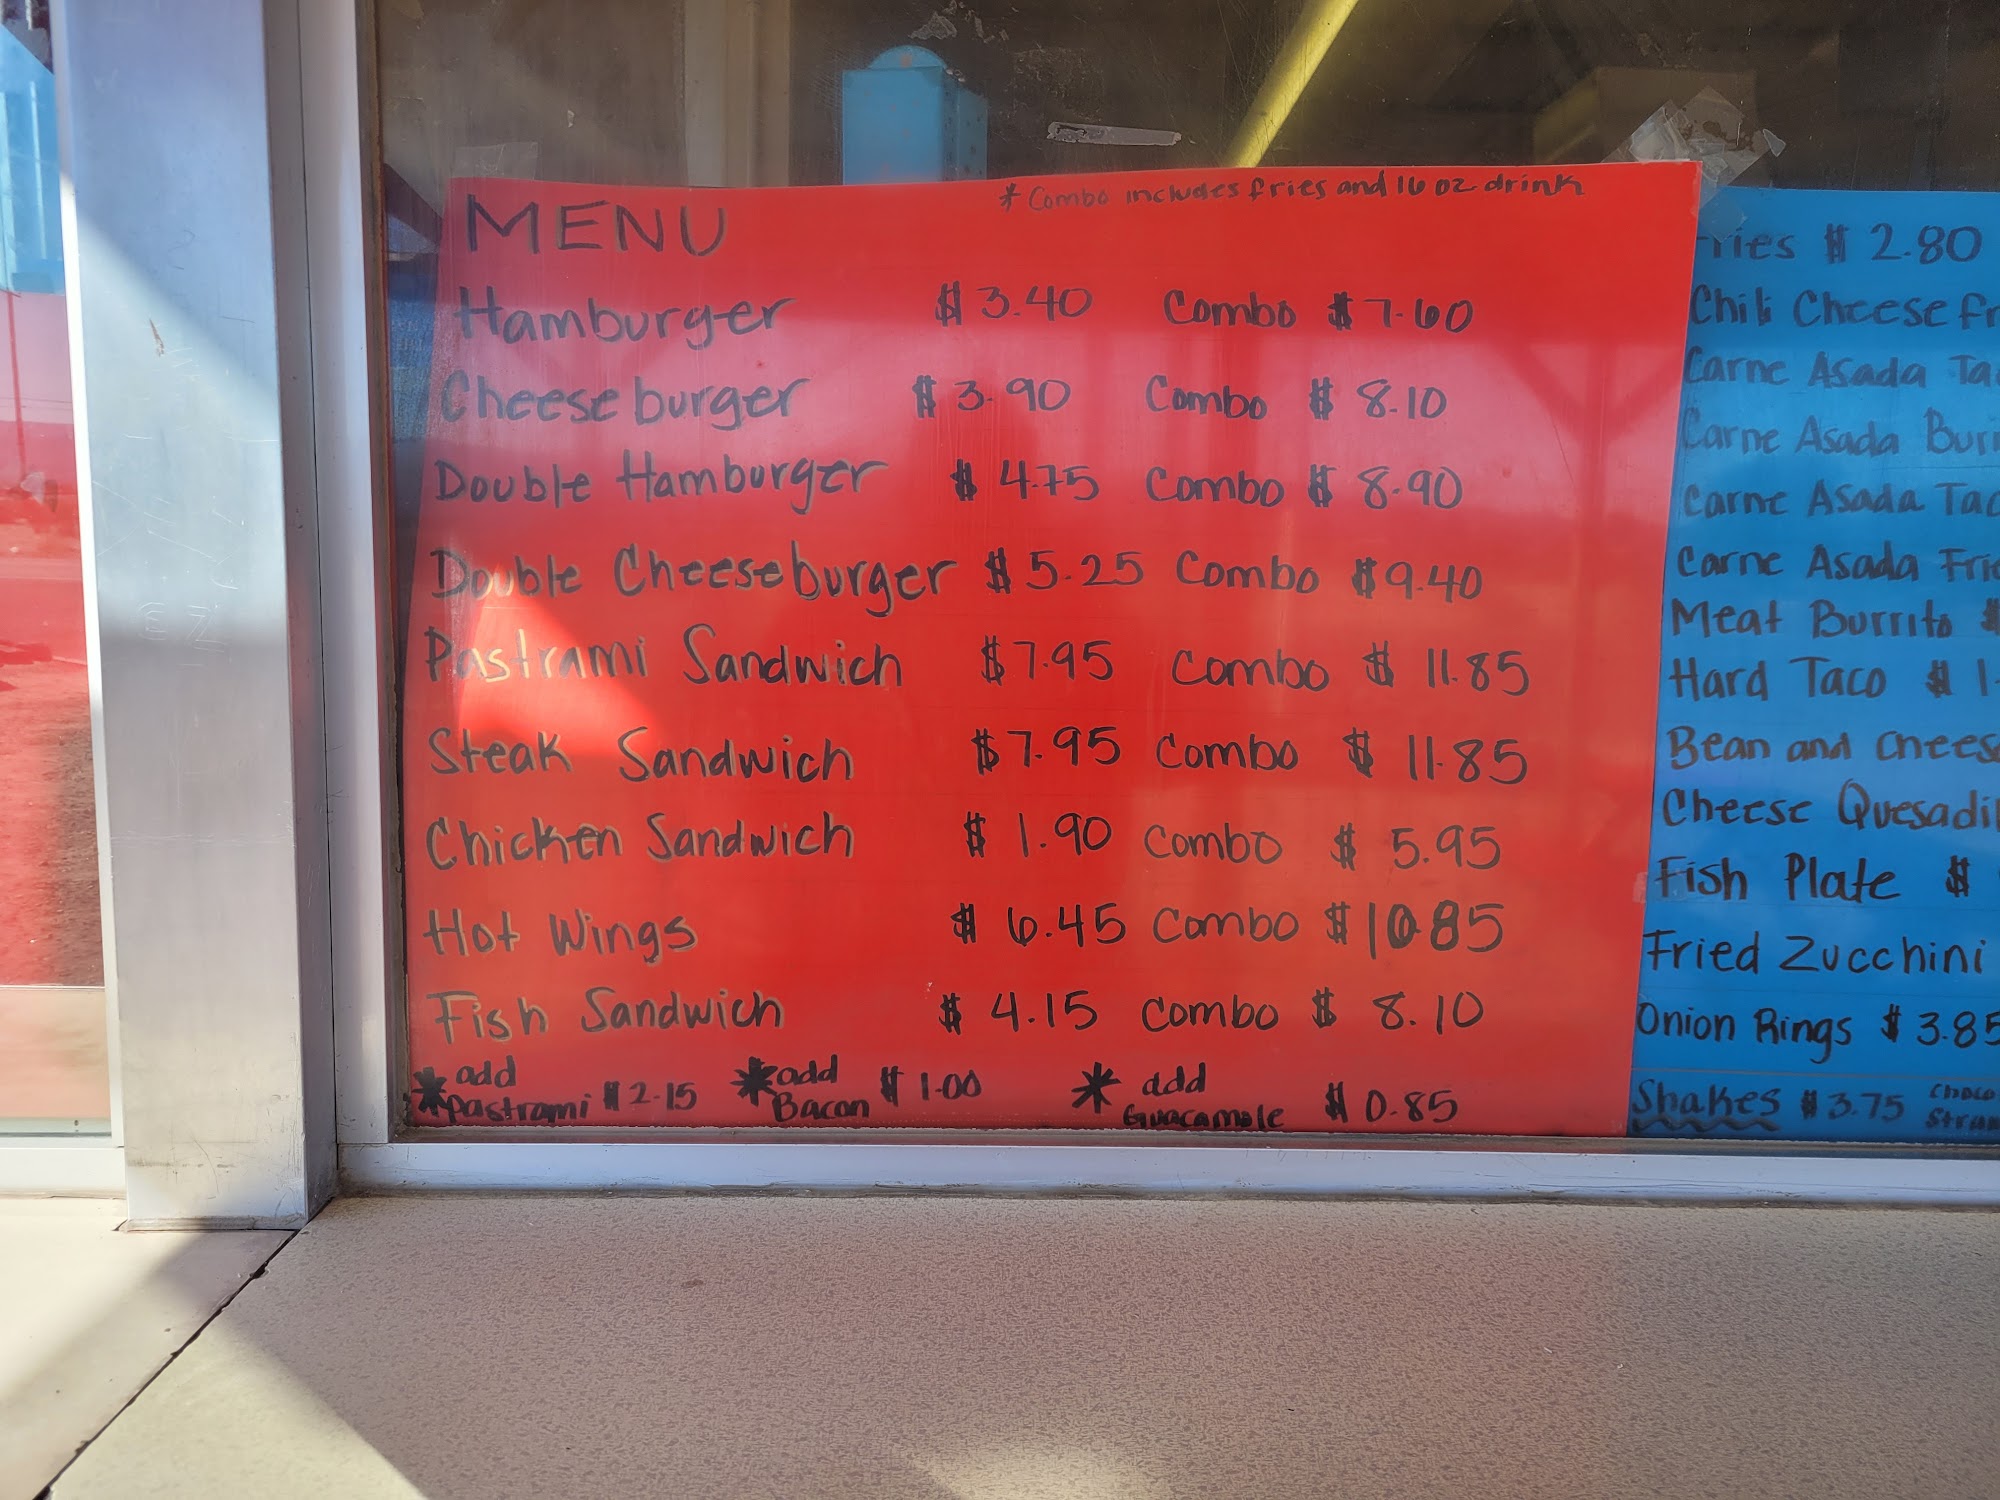 MENU
* Combo includes fries and 16 oz drink
Hamburger $ 3.40 Combo $ 7.60
Cheeseburger $ 3.90 Combo $ 8.10
Double Hamburger $ 4.75 Combo $ 8.90
Double Cheeseburger $ 5.25 Combo $ 9.40
Pastrami Sandwich $ 7.95 Combo $ 11.85
Steak Sandwich $ 7.95 Combo $ 11.85
Chicken Sandwich $ 1.90 Combo $ 5.95
Hot Wings $ 6.45 Combo $ 10.85
Fish Sandwich $ 4.15 Combo $ 8.10
* add Pastrami $ 2.15 * add Bacon $ 1.00 * add Guacamole $ 0.85
Fries $ 2.80
Chili Cheese
Carne Asada
Carne Asada
Carne Asada
Carne Asada
Meat Burrito $
Hard Taco $ 1.
Bean and Chees
Cheese
Fish Plate $
Fried Zucchini
Onion Rings $ 3.85
Shakes $ 3.75